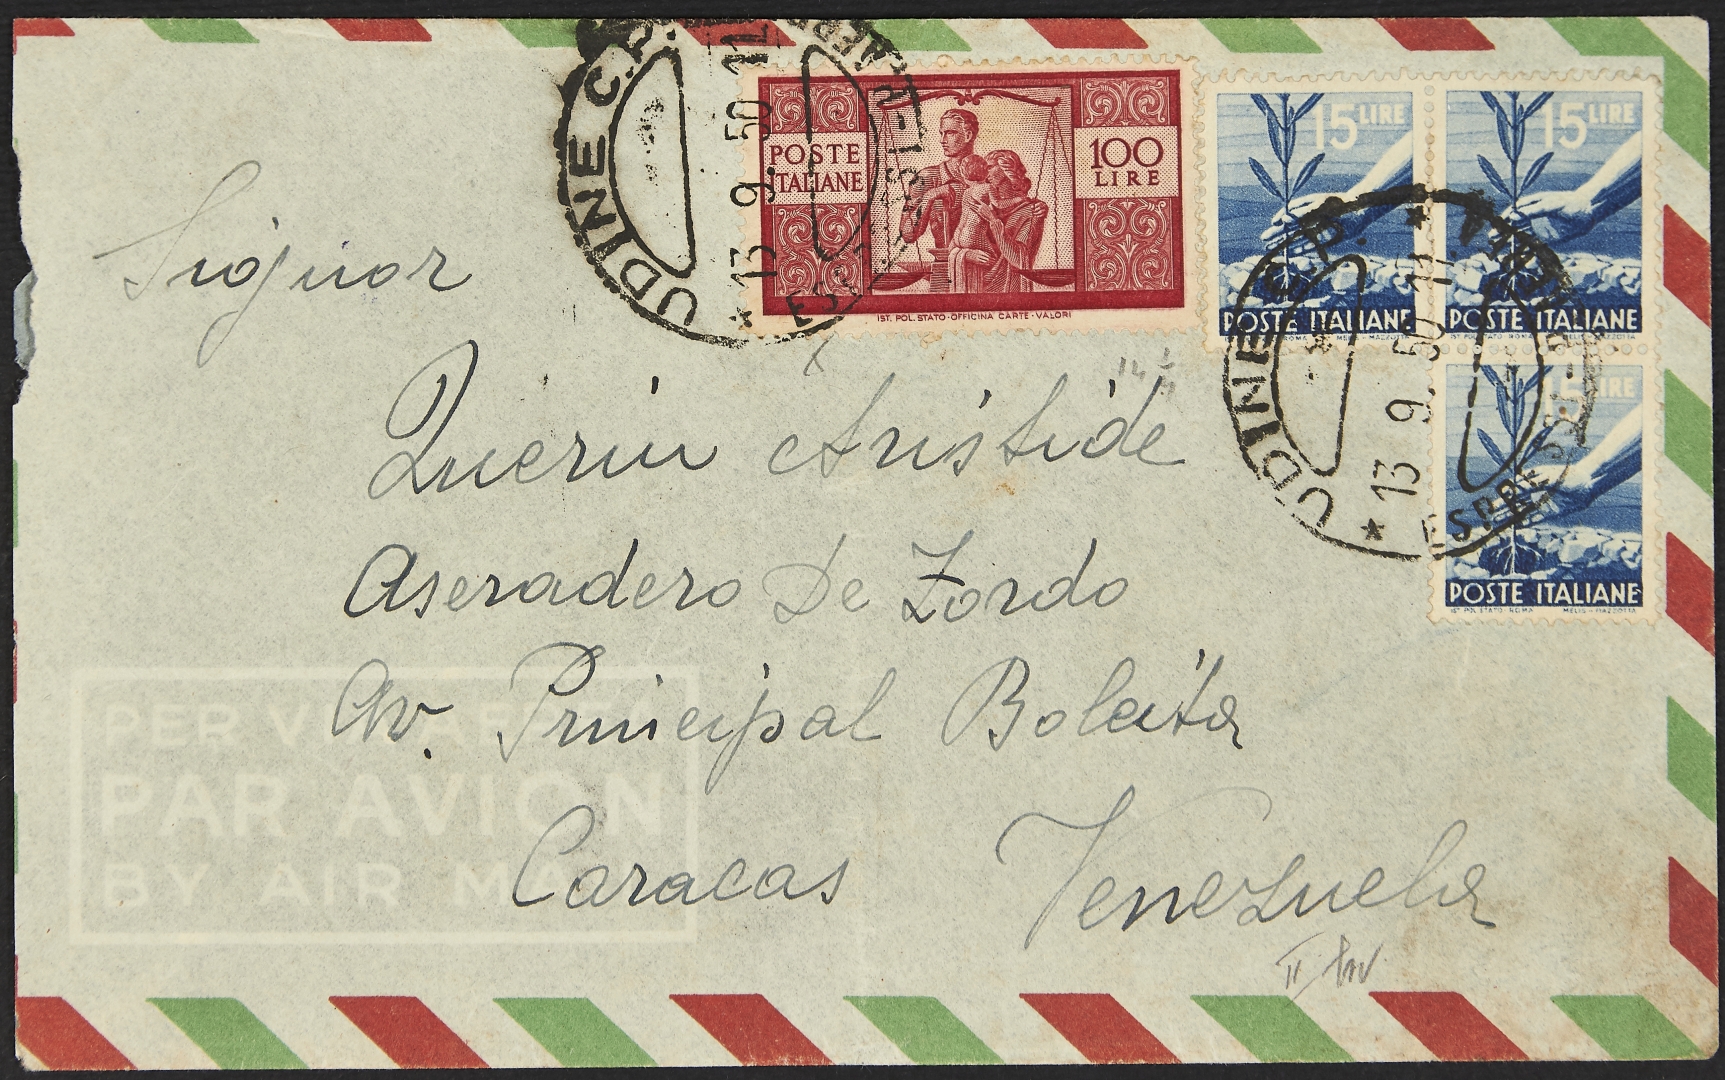 UDINE C.P. 13 9. 50 12
POSTE ITALIANE
100 LIRE
IST. POL. STATO · OFFICINA CARTE - VALORI
15 LIRE
POSTE ITALIANE
15 LIRE
POSTE ITALIANE
15 LIRE
POSTE ITALIANE
IST. POL. STATO · ROMA MELIS - MAZZOTTA
UDINE C.P. 13 9. 50 12
14 1/4
Signor
Querin Aristide
Aseradero De Zordo
Av. Principal Boleita
Caracas Venezuela
PER VIA AEREA
PAR AVION
BY AIR MAIL